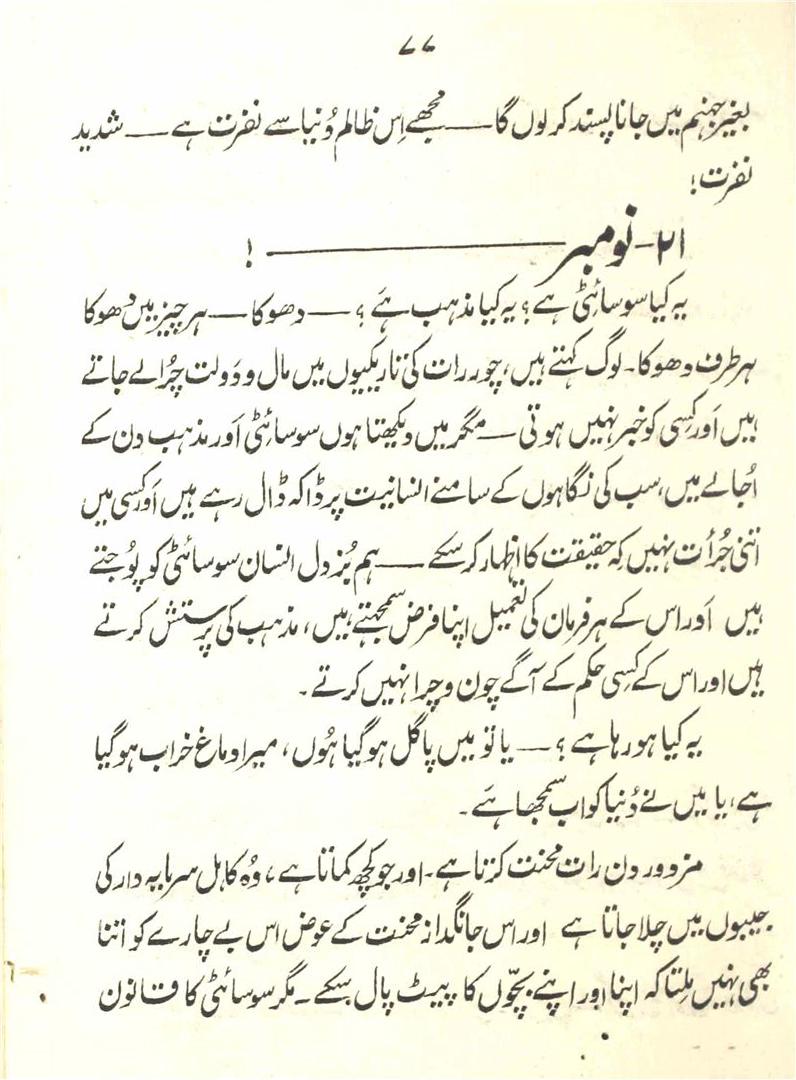 ۷۷
بغیر جہنم میں جانا پسند کر لوں گا — مجھے اِس ظالم دُنیا سے نفرت ہے — شدید
نفرت!
۲۱-نومبر ——— !
یہ کیا سوسائٹی ہے؟ یہ کیا مذہب ہَے ؟ — دھوکا — ہر چیز میں دھوکا
ہر طرف دھوکا۔ لوگ کہتے ہیں، چور رات کی تاریکیوں میں مال و دَولت چُرا لے جاتے
ہیں اَور کِسی کو خبر نہیں ہوتی — مگر میں دیکھتا ہوں سوسائٹی اَور مذہب دن کے
اُجالے میں، سب کی نگاہوں کے سامنے انسانیت پر ڈاکہ ڈال رہے ہیں اَور کسی میں
اتنی جُرأت نہیں کِہ حقیقت کا اظہار کر سکے — ہم بُزدل انسان سوسائٹی کو پوُجتے
ہیں اَور اس کے ہر فرمان کی تعمیل اپنا فرض سمجھتے ہیں، مذہب کی پرستش کرتے
ہیں اور اس کے کِسی حکم کے آگے چون و چرا نہیں کرتے۔
یہ کیا ہو رہا ہے ؟ — یا تو میں پاگل ہو گیا ہُوں، میرا دماغ خراب ہو گیا
ہے، یا میں نے دُنیا کو اب سمجھا ہَے۔
مزدور دن رات محنت کرتا ہے۔ اور جو کچھ کماتا ہے، وُہ کاہل سرمایہ دار کی
جیبوں میں چلا جاتا ہے اور اس جانگداز محنت کے عوض اس بے چارے کو اتنا
بھی نہیں مِلتا کہ اپنا اور اپنے بچّوں کا پیٹ پال سکے۔ مگر سوسائٹی کا قانون